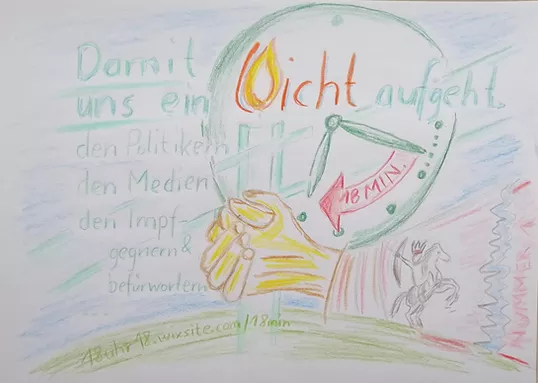 Damit
uns ein Licht aufgeht,
den Politikern
den Medien
den Impf-
gegnern &
befürwortern
18 MIN.
NUMMER 1
18uhr18.wixsite.com/18min